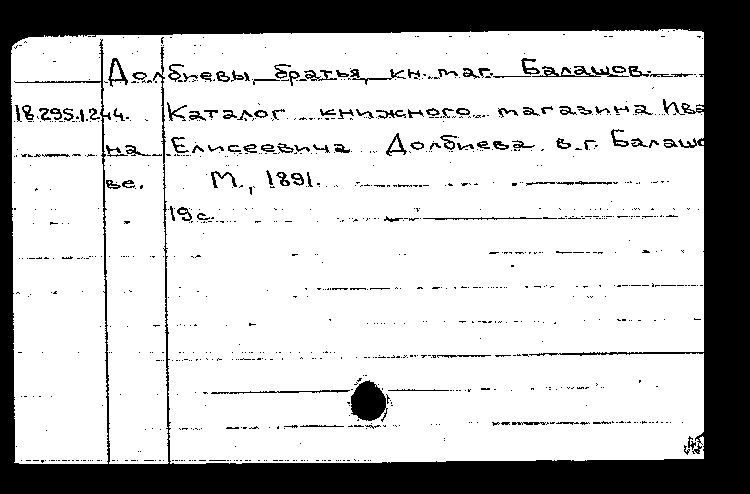 Долбиевы, братья, кн. маг. Балашов.
18.295.1.244. Каталог книжного магазина Ива
на Елисеевича Долбиева в г. Балашо
ве. М., 1891.
19 с.